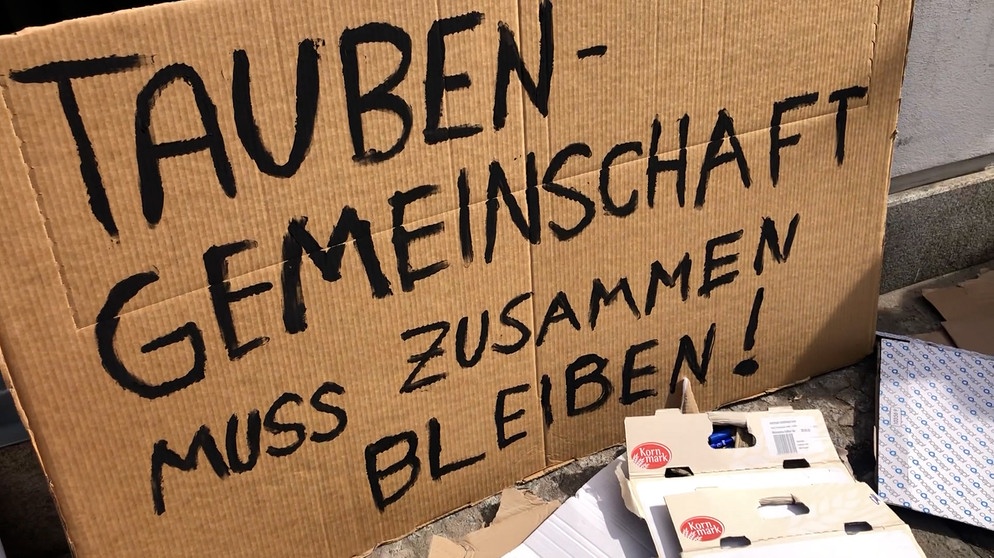 TAUBEN-
GEMEINSCHAFT
MUSS ZUSAMMEN
BLEIBEN!
Korn
mark
Korn
mark